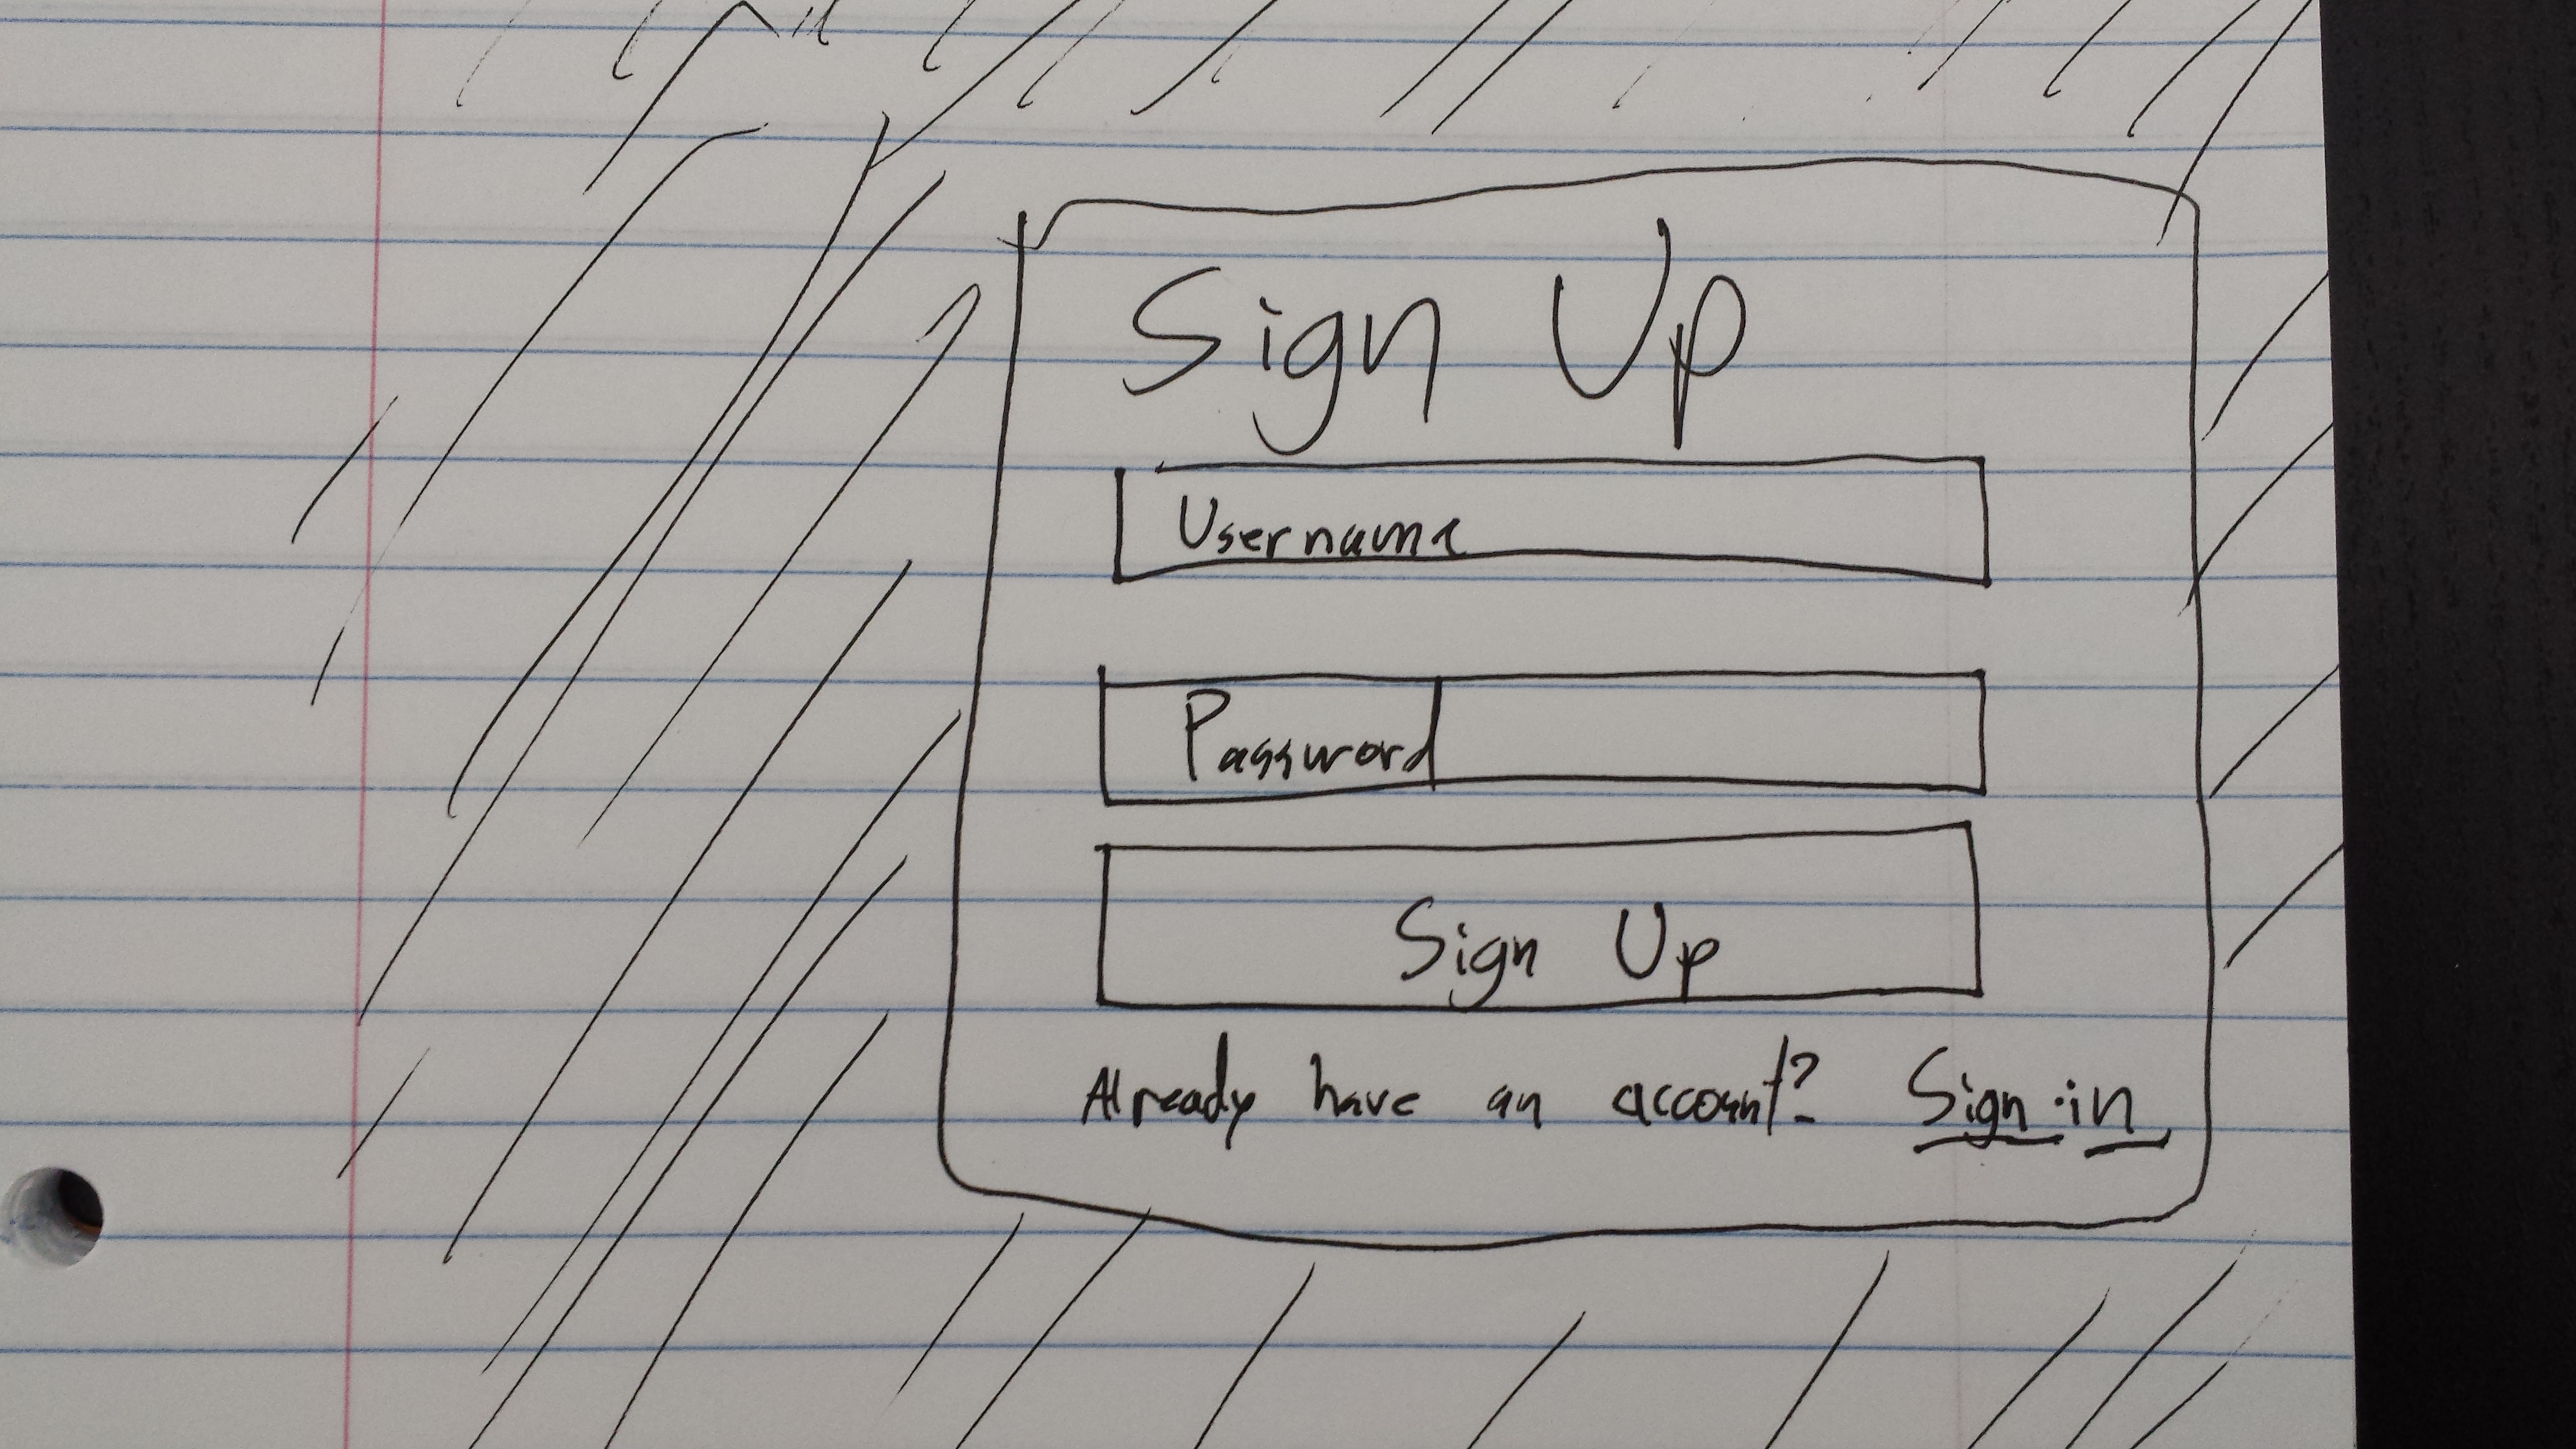 Sign Up
Username
Password
Sign Up
Already have an account? Sign in